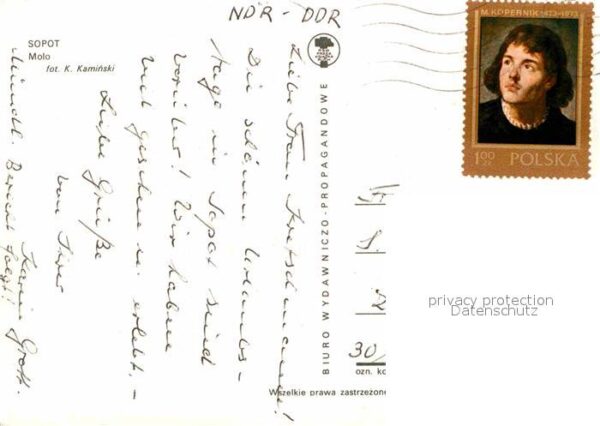 NDR - DDR
SOPOT
Molo
fot. K. Kamiński
Liebe Frau Kretschmann!
Die schönen Urlaubs-
tage in Sopot sind
vorüber! Wir haben
viel gesehen u. erlebt. -
Liebe Grüße
von Ihrer
Karin Groth.
Mündl. Bericht folgt!
BIURO WYDAWNICZO-PROPAGANDOWE
M. KOPERNIK 1473-1973
1.00 ZŁ
POLSKA
30
ozn. ko
Wszelkie prawa zastrzeżone
privacy protection
Datenschutz